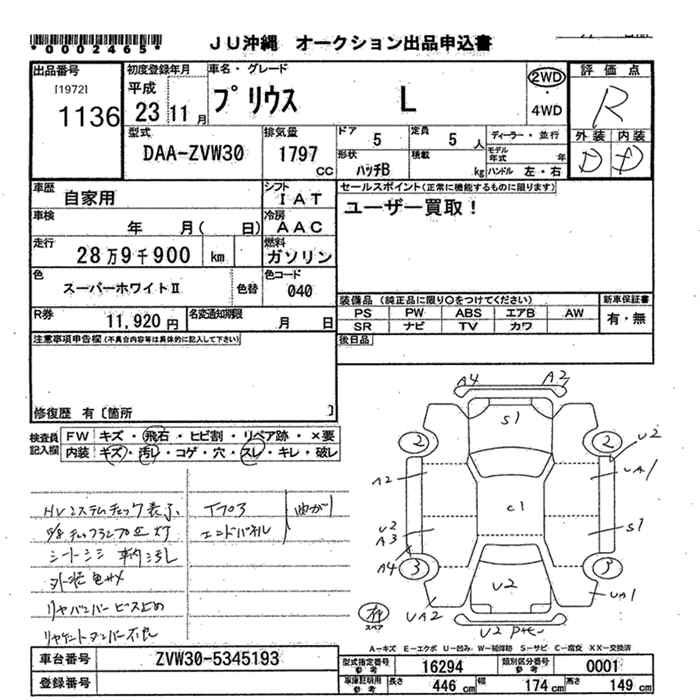 *0002465*
JU沖縄 オークション出品申込書
出品番号
[1972]
1136
初度登録年月
平成
23 11 月
車名・グレード
プリウス L
2WD
・
4WD
評価点
R
外装 内装
D D
型式
DAA-ZVW30
排気量
1797 CC
ドア 5
定員 5 人
ディーラー・並行
形状 ハッチB
積載 kg
モデル年式 年
ハンドル 左・右
車歴 自家用
シフト IAT
セールスポイント(正常に機能するものに限ります)
ユーザー買取!
車検 年 月( 日)
冷房 AAC
走行 28万9千900 km
燃料 ガソリン
色 スーパーホワイトⅡ 色替
色コード 040
R券 11,920 円
名変通知期限 月 日
装備品(純正品に限り○をつけてください)
新車保証書
PS PW ABS エアB AW
SR ナビ TV カワ
有・無
注意事項申告欄(不具合内容等は具体的に記入して下さい)
後日品
修復歴 有〔箇所 〕
検査員記入欄
FW キズ・飛石・ヒビ割・リペア跡・×要
内装 キズ・汚レ・コゲ・穴・スレ・キレ・破レ
HVシステムチェック表示
エンドパネル
曲がり
外装色サメ
リヤバンパービス止め
A4 A2
S1
2 2
U2
A2
UA1
C1
U2
A3
S1
A4
3 3
U2
UA2
UA1
U2
有
スペア
A-キズ E-エクボ U-凹み W-補修跡 S-サビ C-腐食 XX-交換済
車台番号 ZVW30-5345193
型式指定番号 参考 16294
類別区分番号 参考 0001
登録番号
車庫証明用 参考 長さ 446 cm 幅 174 cm 高さ 149 cm